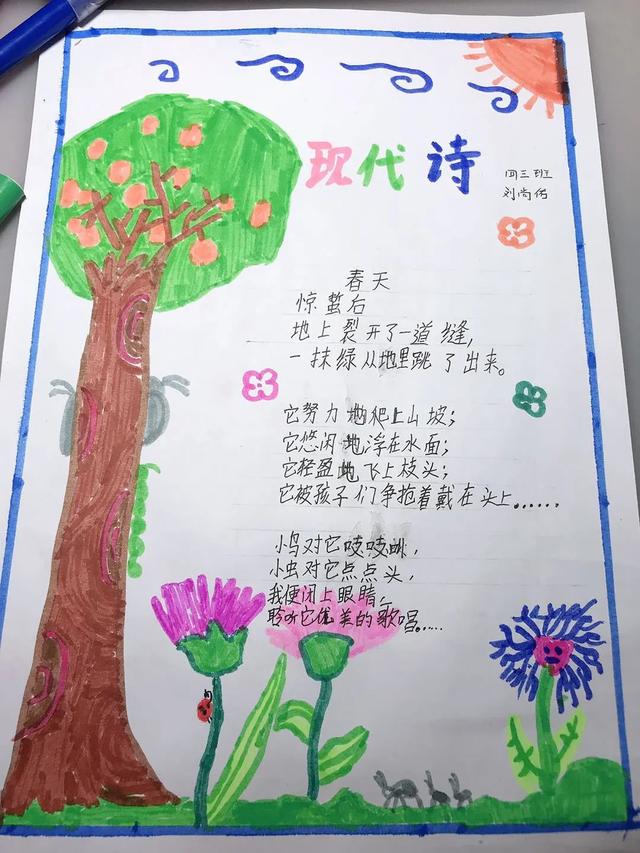 现代诗
四三班
刘尚
春天
惊蛰后
地上裂开了一道缝，
一抹绿从地里跳了出来。
它努力地爬上山坡；
它悠闲地浮在水面；
它轻盈地飞上枝头；
它被孩子们争抢着戴在头上……
小鸟对它吱吱叫，
小虫对它点点头，
我便闭上眼睛，
聆听它优美的歌唱……